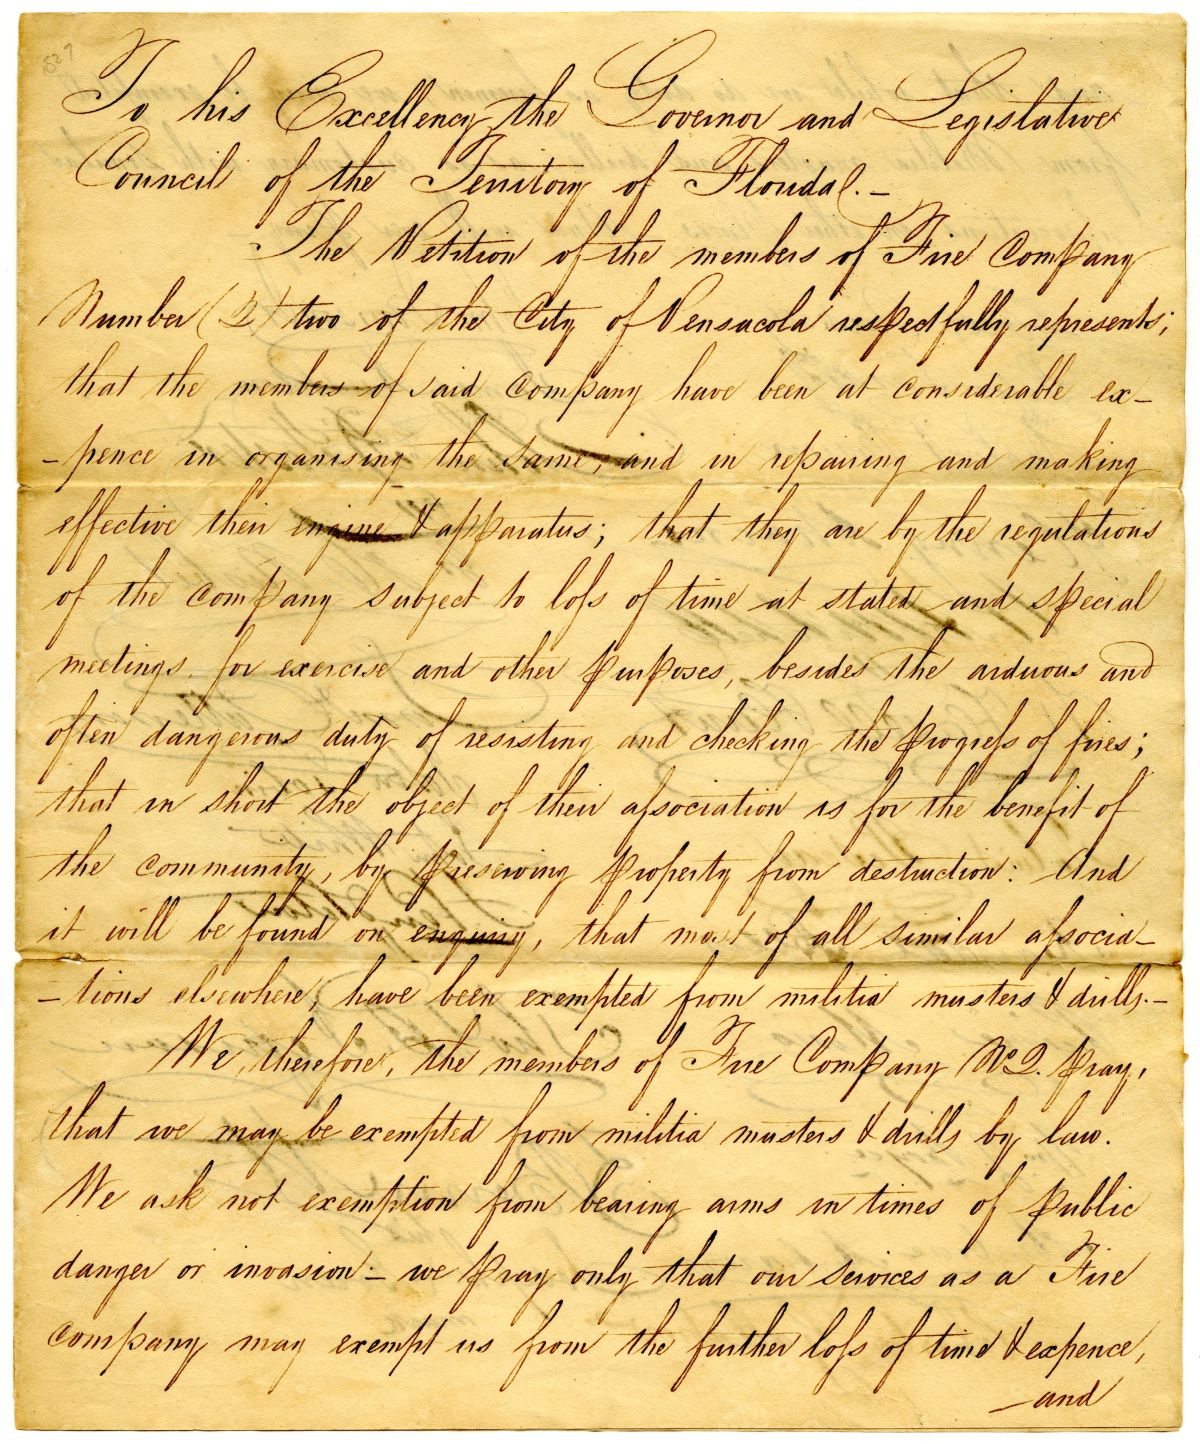 1827
To his Excellency the Governor and Legislative
Council of the Territory of Florida.—
The Petition of the members of Fire Company
Number (2) two of the City of Pensacola respectfully represents;
that the members of said Company have been at considerable ex-
-pence in organising the same, and in repairing and making
effective their engine & apparatus; that they are by the regulations
of the company subject to loss of time at stated and special
meetings for exercise and other purposes, besides the arduous and
often dangerous duty of resisting and checking the progress of fires;
that in short the object of their association is for the benefit of
the community, by preserving property from destruction: And
it will be found on enquiry, that most of all similar associa-
-tions elsewhere, have been exempted from militia musters & drills.—
We, therefore, the members of Fire Company No 2. pray,
that we may be exempted from militia musters & drills by law.
We ask not exemption from bearing arms in times of public
danger or invasion — we pray only that our services as a Fire
company may exempt us from the further loss of time & expence,
—and